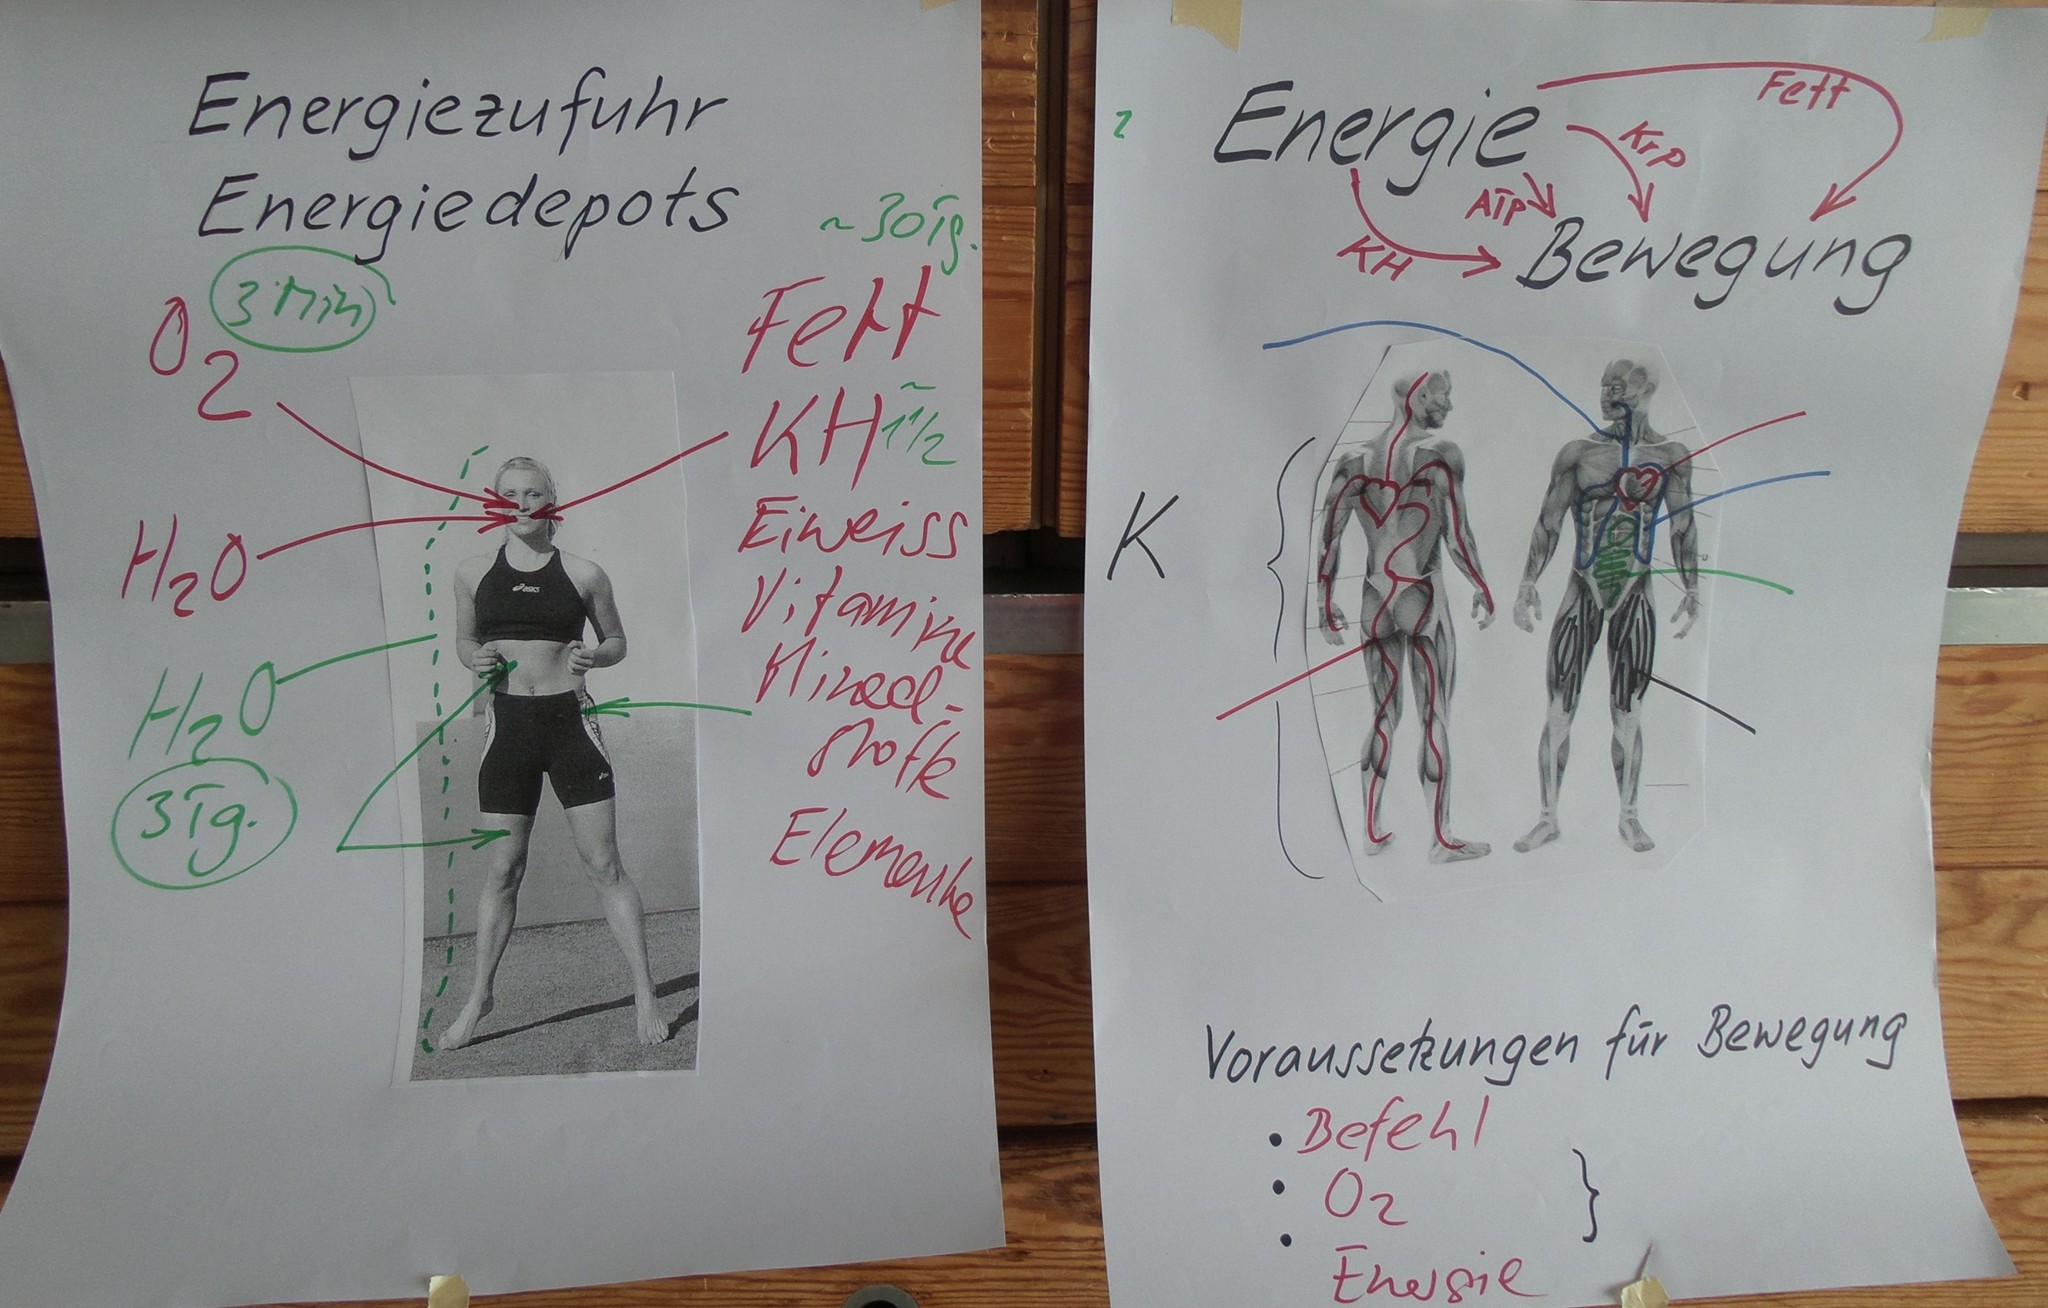 Energiezufuhr
Energiedepots
~30Tg.
O2
3 Min
Fett
KH ~ 1 1/2
Eiweiss
Vitamine
H2O
Mineral-
stoffe
H2O
3Tg.
Elemente
asics
2
Energie
Fett
KrP
ATP
KH
Bewegung
K
Voraussetzungen für Bewegung
• Befehl
• O2
• Energie